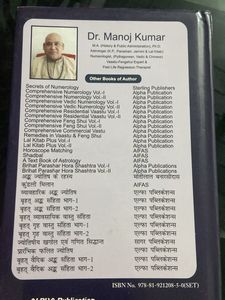 Dr. Manoj Kumar
M.A. (History & Public Administration), Ph.D.
Astrologer (K.P., Parashari, Jaimini & Lal Kitab)
Numerologist, (Pythagorean, Vedic & Chinese)
Vaastu-Fengshui Expert &
Past Life Regression Therapist
Other Books of Author
Secrets of Numerology Sterling Publishers
Comprehensive Numerology Vol.-I Alpha Publication
Comprehensive Numerology Vol.-II Alpha Publication
Comprehensive Vedic Numerology Vol-I Alpha Publication
Comprehensive Vedic Numerology Vol-II Alpha Publication
Comprehensive Residential Vaastu Vol-I Alpha Publication
Comprehensive Residential Vaastu Vol-II Alpha Publication
Comprehensive Feng Shui Vol.-I Alpha Publication
Comprehensive Feng Shui Vol.-II Alpha Publication
Comprehensive Commercial Vastu Alpha Publication
Remedies in Vaastu & Feng Shui Alpha Publication
Lal Kitab Plus Vol.-I Alpha Publication
Lal Kitab Plus Vol.-II Alpha Publication
Horoscope Matching AIFAS
Shadbal AIFAS
A Text Book of Astrology AIFAS
Brihat Parashar Hora Shashtra Vol-I Alpha Publications
Brihat Parashar Hora Shashtra Vol-II Alpha Publication
अंक ज्योतिष के रहस्य
कुंडली मिलान AIFAS
व्यावहारिक अंक ज्योतिष एल्फा पब्लिकेशन्स
बृहद् अंक संहिता भाग-1 एल्फा पब्लिकेशन्स
बृहद् अंक संहिता भाग-2 एल्फा पब्लिकेशन्स
बृहद् व्यावसायिक वास्तु संहिता एल्फा पब्लिकेशन्स
बृहद् गृह वास्तु संहिता भाग-1 एल्फा पब्लिकेशन्स
बृहद् गृह वास्तु संहिता भाग-2 एल्फा पब्लिकेशन्स
ज्योतिषीय खगोल एवं गणित सिद्धान्त सागर पब्लिकेशन्स
प्रारम्भिक फलित ज्योतिष सागर पब्लिकेशन्स
बृहद् वैदिक अंक संहिता भाग-1 एल्फा पब्लिकेशन्स
बृहद् वैदिक अंक संहिता भाग-2 एल्फा पब्लिकेशन्स
ISBN No. 978-81-921208-5-0(SET)
ALPHA Publication